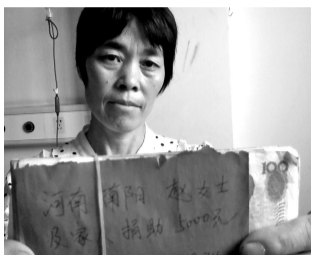 河南 南阳 赵女士
及家人 捐助 5000元
100